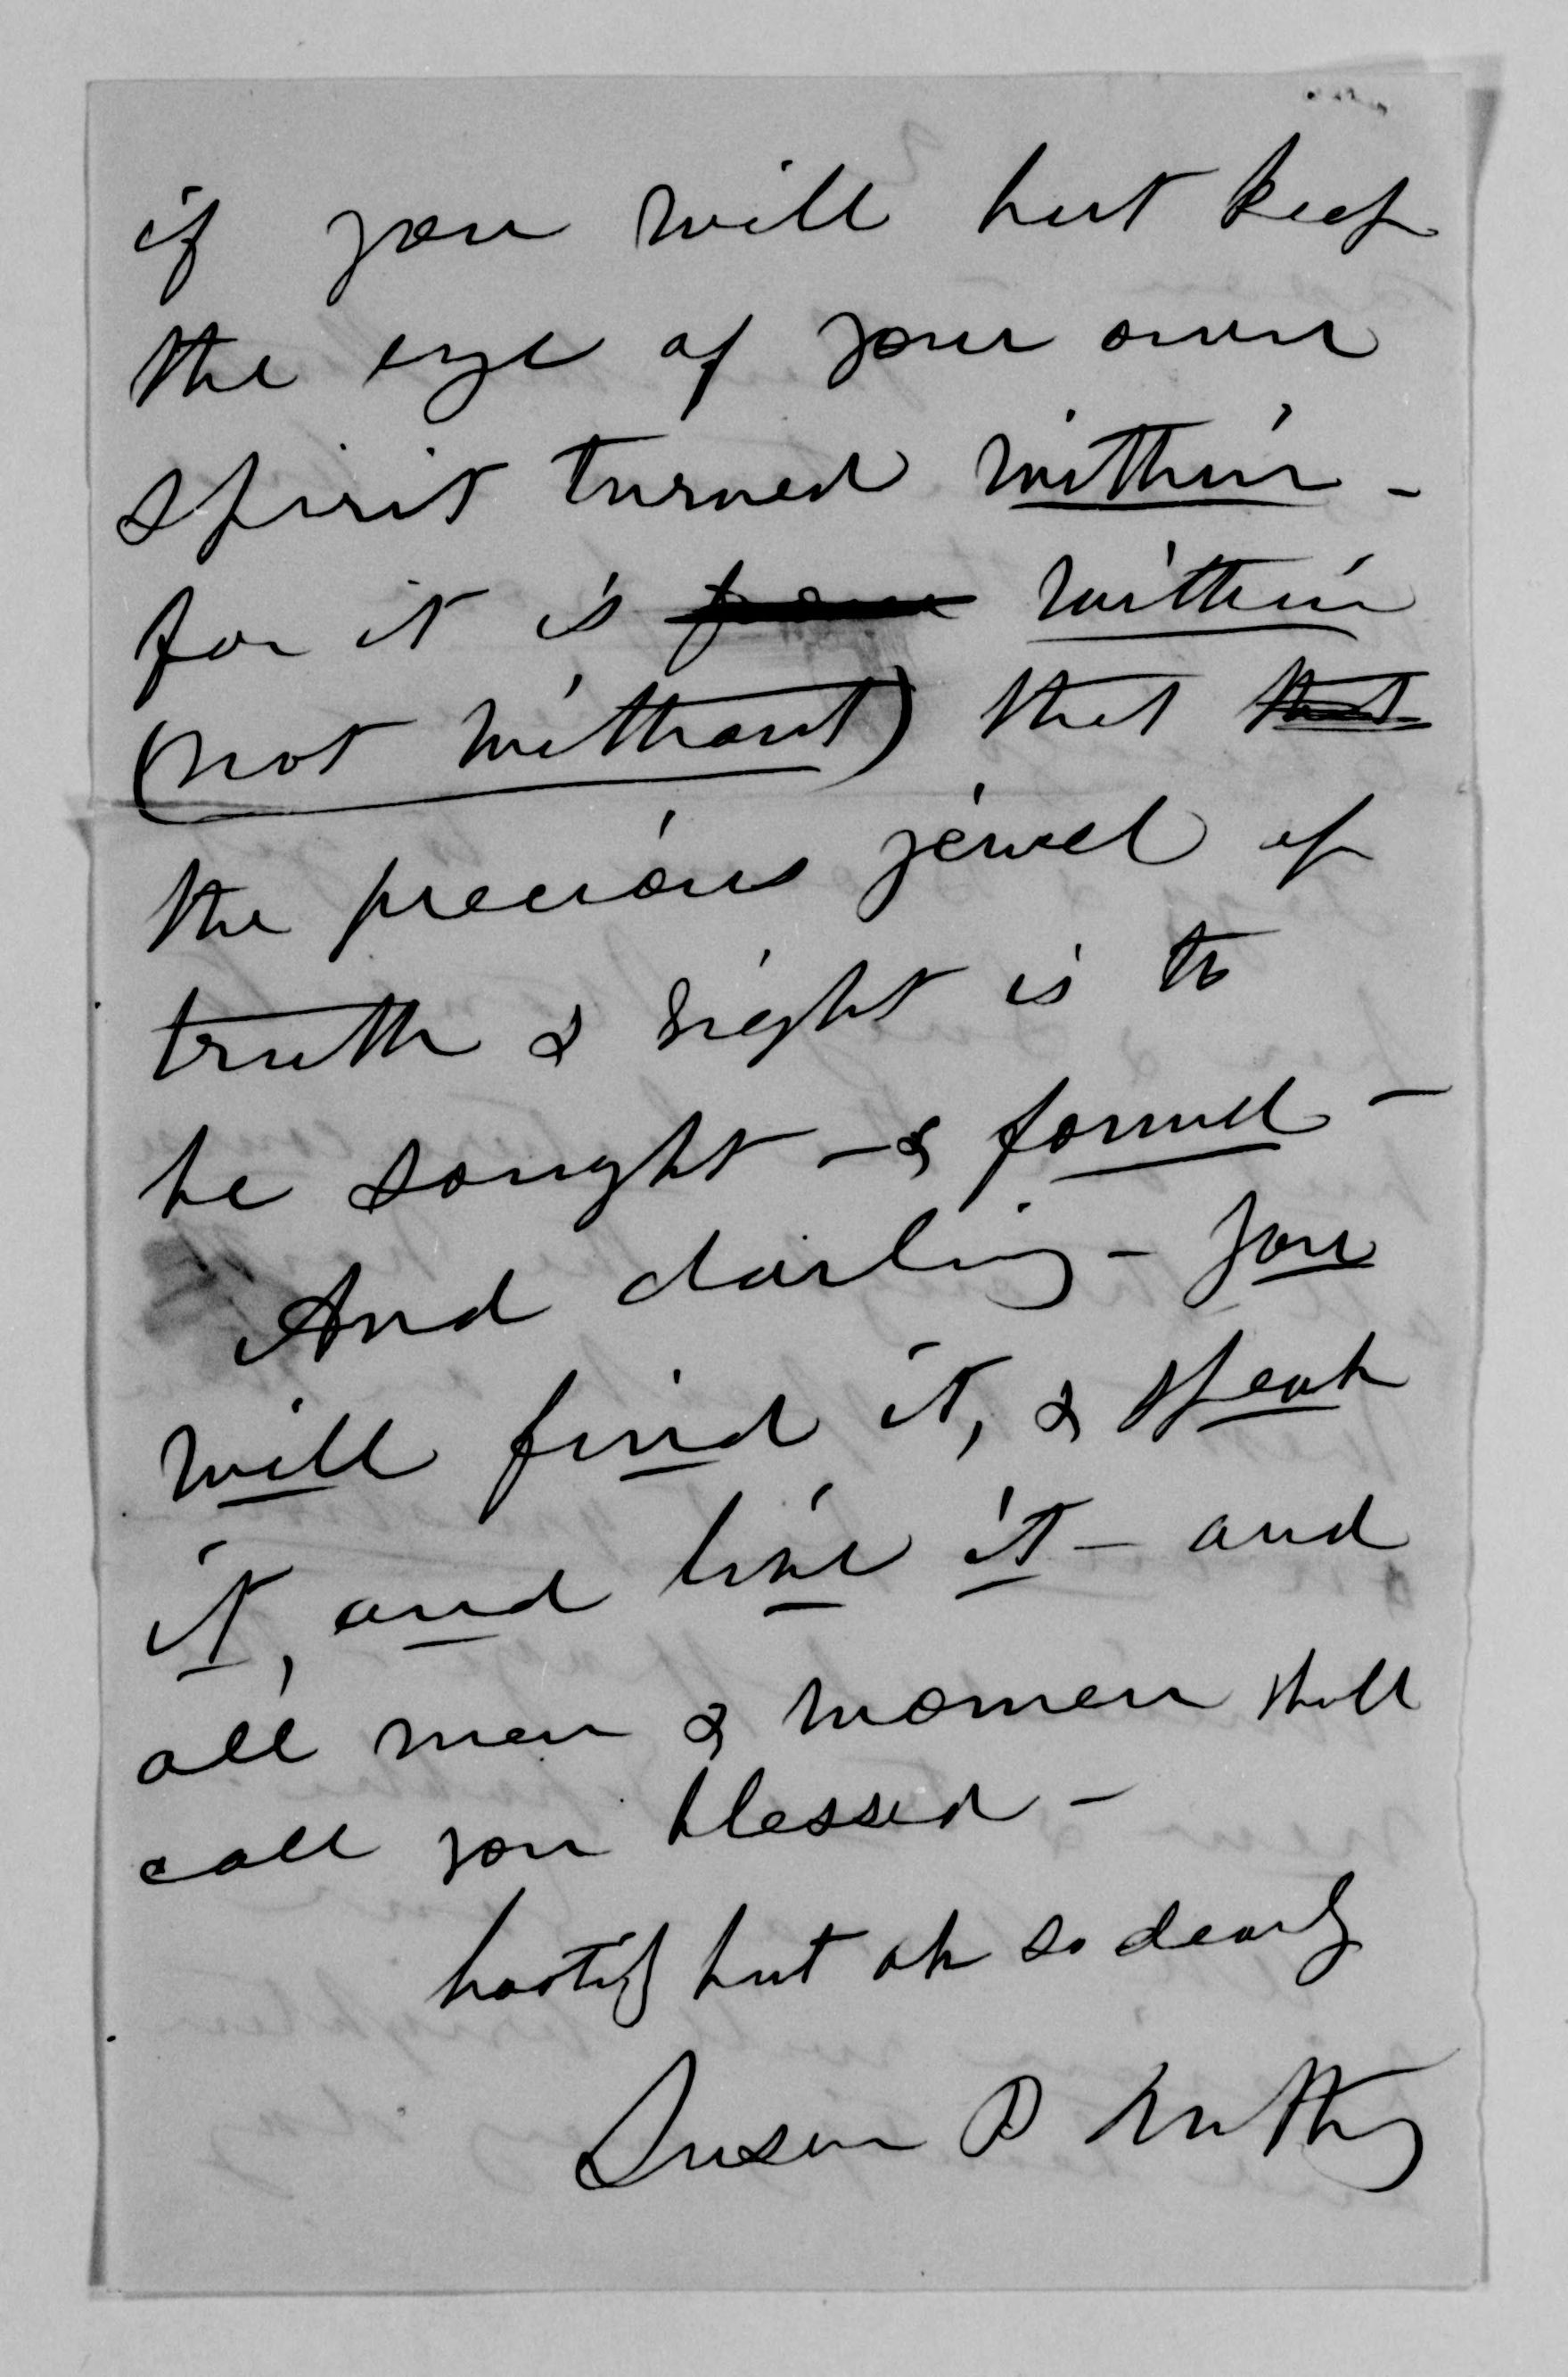 if you will but keep
the eye of your own
spirit turned within -
for it is within
(not without) that that
the precious jewel of
truth & right is to
be sought - & found -
And darling - you
will find it, & speak
it, and live it - and
all men & women shall
call you blessed -
hastily but oh so dearly
Susan B Anthony